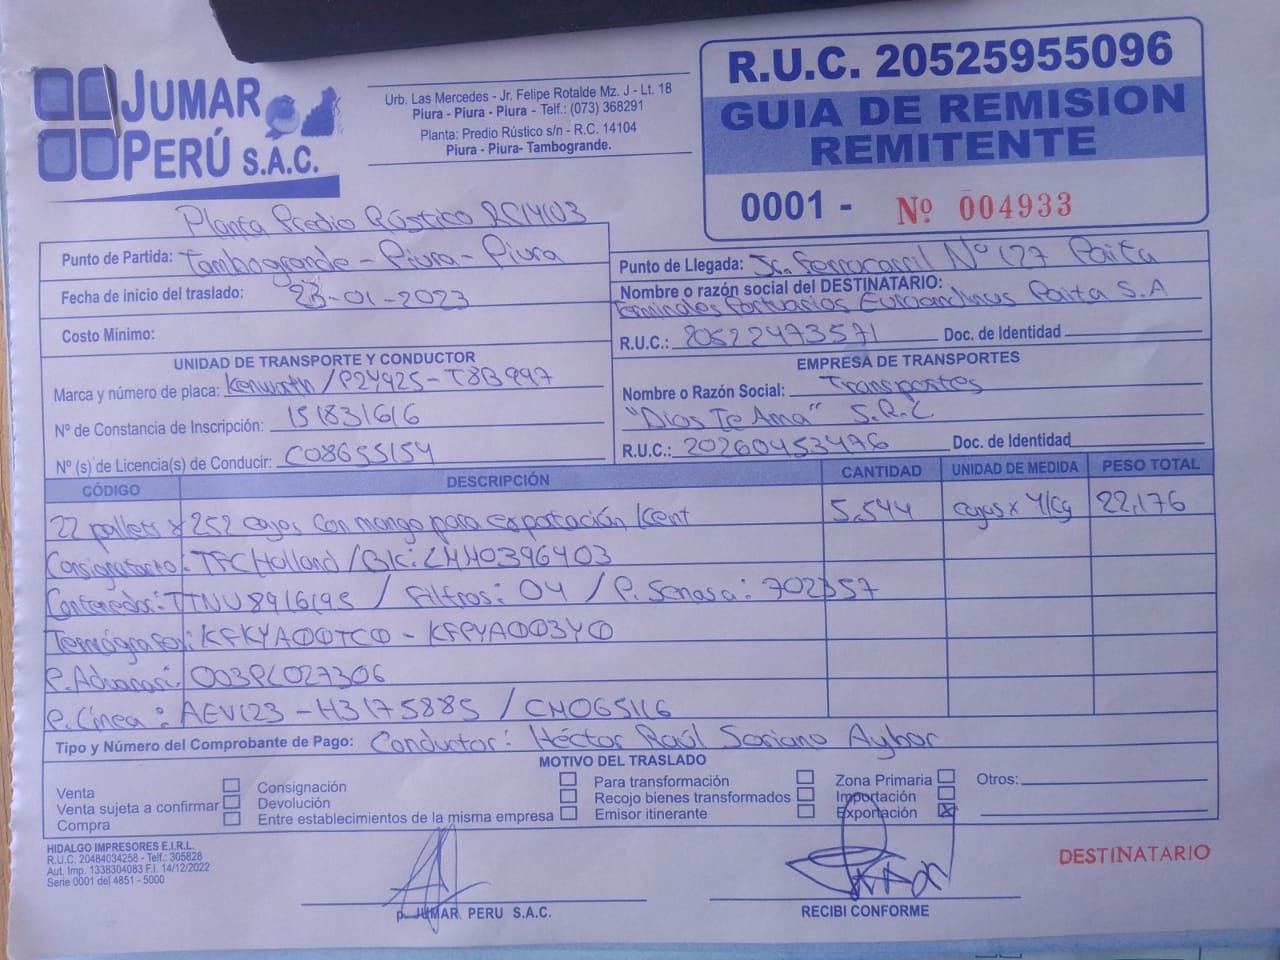 JUMAR
PERÚ S.A.C.
Urb. Las Mercedes - Jr. Felipe Rotalde Mz. J - Lt. 18
Piura - Piura - Piura - Telf.: (073) 368291
Planta: Predio Rústico s/n - R.C. 14104
Piura - Piura- Tambogrande.
R.U.C. 20525955096
GUIA DE REMISION
REMITENTE
0001 - Nº 004933
Planta Predio Rústico RC14103
Punto de Partida: Tambogrande - Piura - Piura
Fecha de inicio del traslado: 23-01-2023
Costo Mínimo:
Punto de Llegada: Jr. Ferrocarril Nº 127 Paita
Nombre o razón social del DESTINATARIO:
Terminales Portuarios Euroandinos Paita S.A
R.U.C.: 20522473571 Doc. de Identidad
UNIDAD DE TRANSPORTE Y CONDUCTOR
Marca y número de placa: Kenworth / P2Y925 - T8B997
Nº de Constancia de Inscripción: 151831616
Nº (s) de Licencia(s) de Conducir: C08655154
EMPRESA DE TRANSPORTES
Nombre o Razón Social: Transportes
"Dios Te Ama" S.R.L
R.U.C.: 20260453476 Doc. de Identidad
CÓDIGO DESCRIPCIÓN CANTIDAD UNIDAD DE MEDIDA PESO TOTAL
22 pallets x 252 cajas con mango para exportación Kent 5,544 cajas x 4/Kg 22,176
Consignatario: TFC Holland / BK: LMM0396403
Contenedor: TTNU8916195 / Filtros: 04 / P. Senasa: 702357
Termógrafo: KFKYA00TC0 - KFPYA003Y0
P. Aduanas: 003PL027306
P. Línea: AEV123 - H3175885 / CM065116
Tipo y Número del Comprobante de Pago: Conductor: Héctor Raúl Soriano Aybar
MOTIVO DEL TRASLADO
Venta
Venta sujeta a confirmar
Compra
Consignación
Devolución
Entre establecimientos de la misma empresa
Para transformación
Recojo bienes transformados
Emisor itinerante
Zona Primaria
Importación
Exportación X
Otros:
HIDALGO IMPRESORES E.I.R.L.
R.U.C. 20484034258 - Telf.: 305828
Aut. Imp. 1338304083 F.I. 14/12/2022
Serie 0001 del 4851 - 5000
p. JUMAR PERU S.A.C.
RECIBI CONFORME
DESTINATARIO